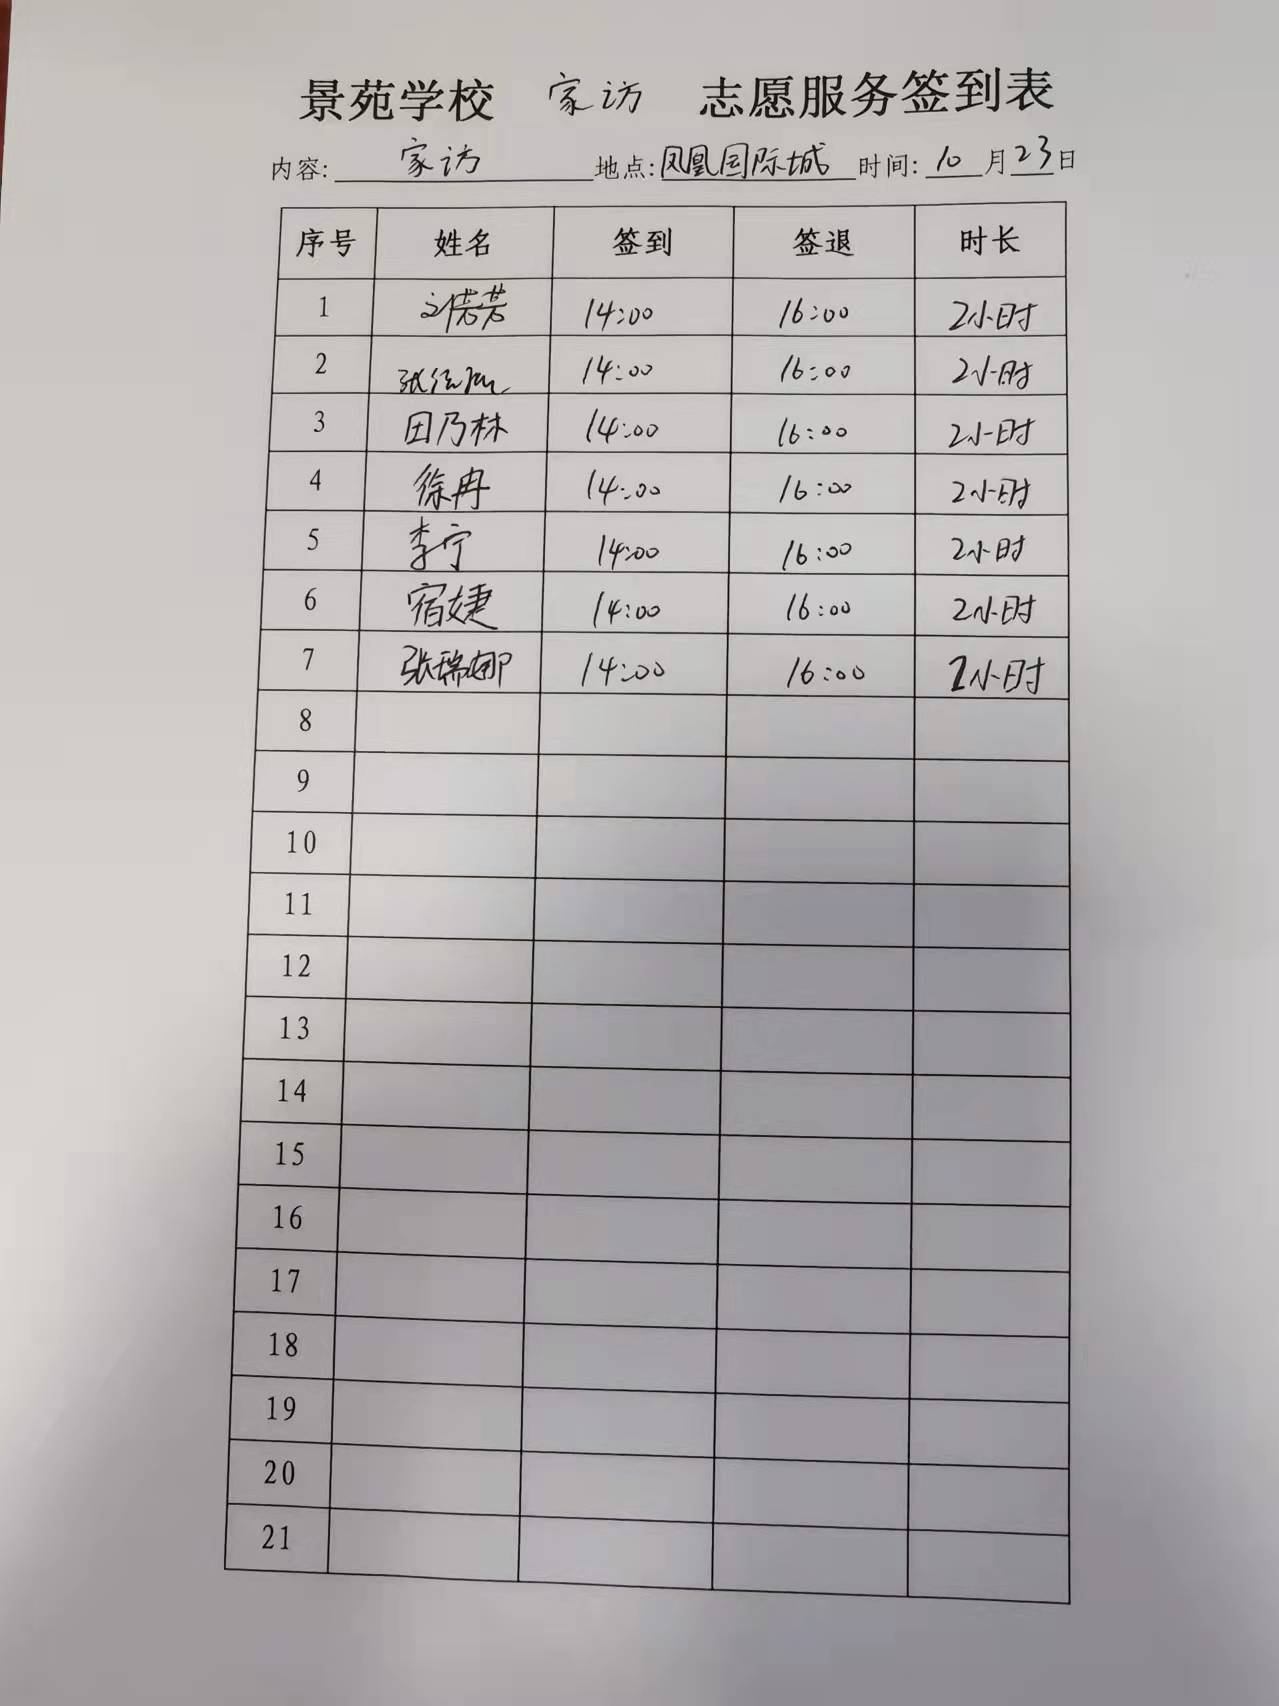 景苑学校 家访 志愿服务签到表
内容: 家访 地点: 凤凰国际城 时间: 10 月 23 日
序号 姓名 签到 签退 时长
1 刘偌芸 14:00 16:00 2小时
2 张 14:00 16:00 2小时
3 田乃林 14:00 16:00 2小时
4 徐冉 14:00 16:00 2小时
5 李宁 14:00 16:00 2小时
6 宿婕 14:00 16:00 2小时
7 张瑞娜 14:00 16:00 2小时
8
9
10
11
12
13
14
15
16
17
18
19
20
21